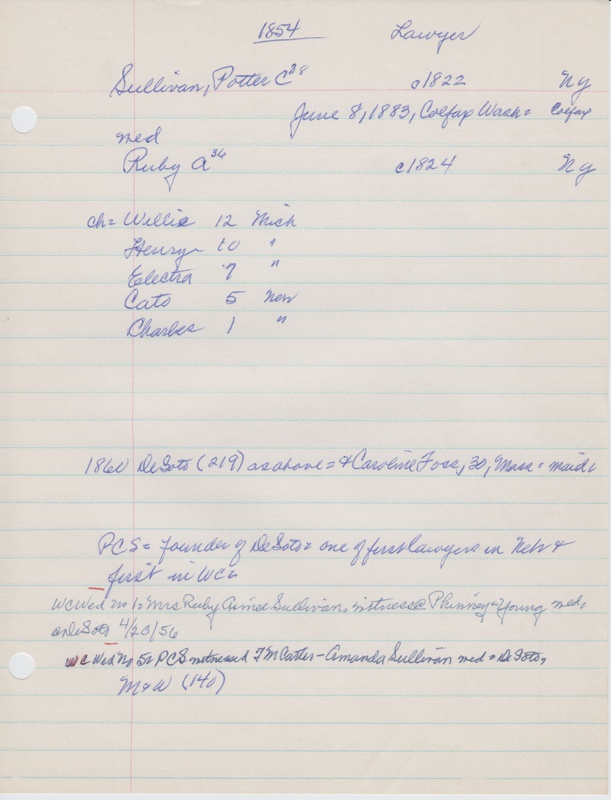 1854 Lawyer
Sullivan, Potter C 38 c1822 Ny
June 8, 1883, Colfax Wash= Colfax
med
Ruby A 36 c1824 Ny
ch= Willie 12 Mich
Henry 10 "
Electra 7 "
Cato 5 Neb
Charles 1 "
1860 DeSoto (219) as above = & Caroline Foss, 30, Mass = maid.
PCS= founder of DeSoto= one of first lawyers in Neb &
first in WC=
WC Wed no 1= Mrs Ruby Aimee Sullivan, witness @ Phinney=Young med,
@ DeSoto 4/20/56
WC Wed No 5= PCS witnessed T M Carter - Amanda Sullivan med = DeSoto,
M & W (140)